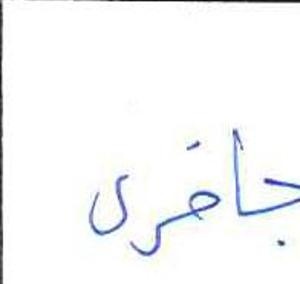 جاخری